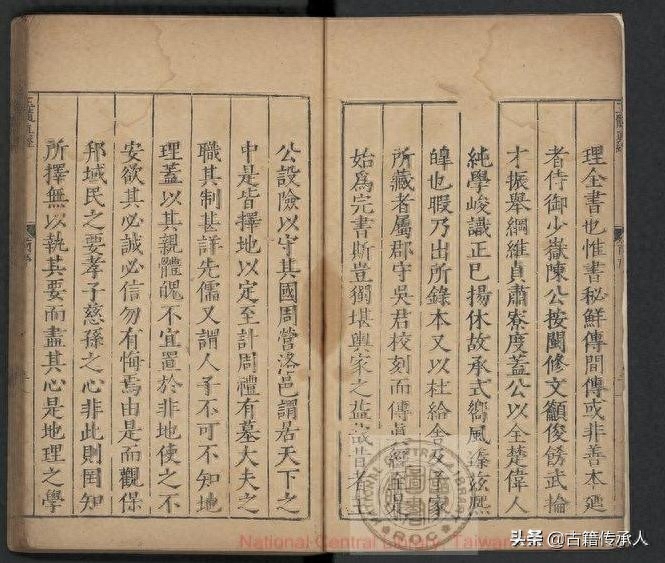 理全書也惟書秘鮮傳間傳或非善本廵
者侍御少嶽陳公按閩修文籲俊餝武掄
才振舉綱維貞肅寮度蓋公以全楚偉人
純學峻識正已揚休故承式嚮風溱兹熙
皥也暇乃出所錄本又以杜給舍及予家
所藏者屬郡守吳君校刻而傳眞經至是
始爲完書斯豈獨堪輿家之盛哉昔者王
公設險以守其國周營洛邑謂居天下之
中是皆擇地以定至計周禮有墓大夫之
職其制甚詳先儒又謂人子不可不知地
理蓋以其親體魄不宜置於非地使之不
安欲其必誠必信勿有悔焉由是而觀保
邦域民之要孝子慈孫之心非此則罔知
所擇無以執其要而盡其心是地理之學
National Central Library, Taiwan
头条 @古籍传承人